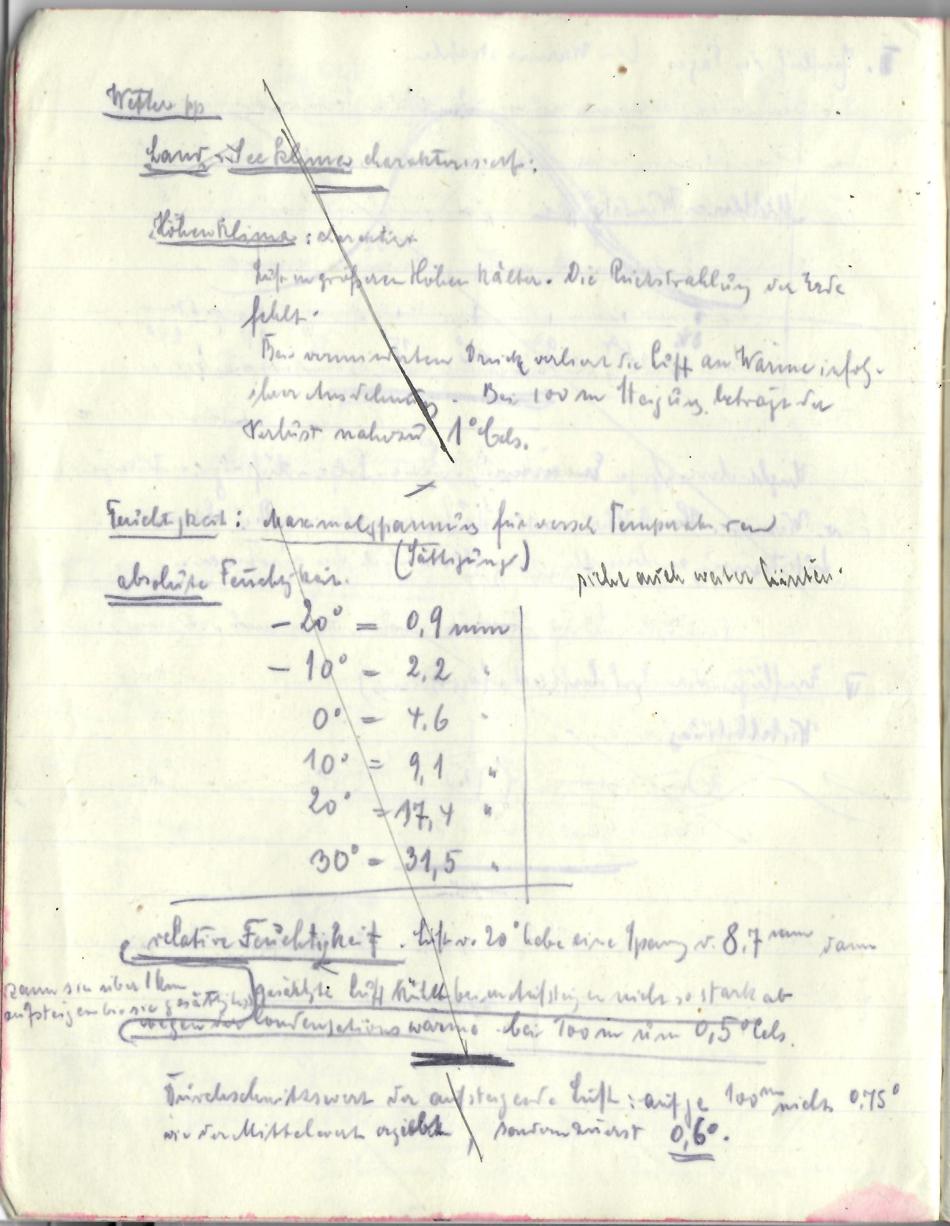 Wetter pp
Land- Seeklima charakterisiert:
Höhenklima:
Luft in größeren Höhen kälter. Die Rückstrahlung der Erde
fehlt.
Bei vermindertem Druck verliert die Luft an Wärme infolge
ihrer Ausdehnung. Bei 100 m Steigung beträgt der
Verlust nahezu 1° Cels.
Feuchtigkeit: Maximalspannung für versch. Temperaturen
(Sättigung)
absolute Feuchtigkeit. siehe auch weiter hinten.
- 20° = 0,9 mm
- 10° = 2,2 "
0° = 4.6 "
10° = 9,1 "
20° = 17,4 "
30° = 31,5 "
relative Feuchtigkeit. Luft v. 20° habe eine Spang v. 8,7 mm dann
kann sie über 1 km
aufsteigen bis sie gesättigt ist
gesättigte Luft kühlt beim Aufsteigen nicht so stark ab
wegen der Condensationswärme bei 100 m um 0,5° Cels.
Durchschnittswert der aufsteigende Luft: auf je 100 m nicht 0,75°
wie der Mittelwert ergiebt, sondern 0,6°.